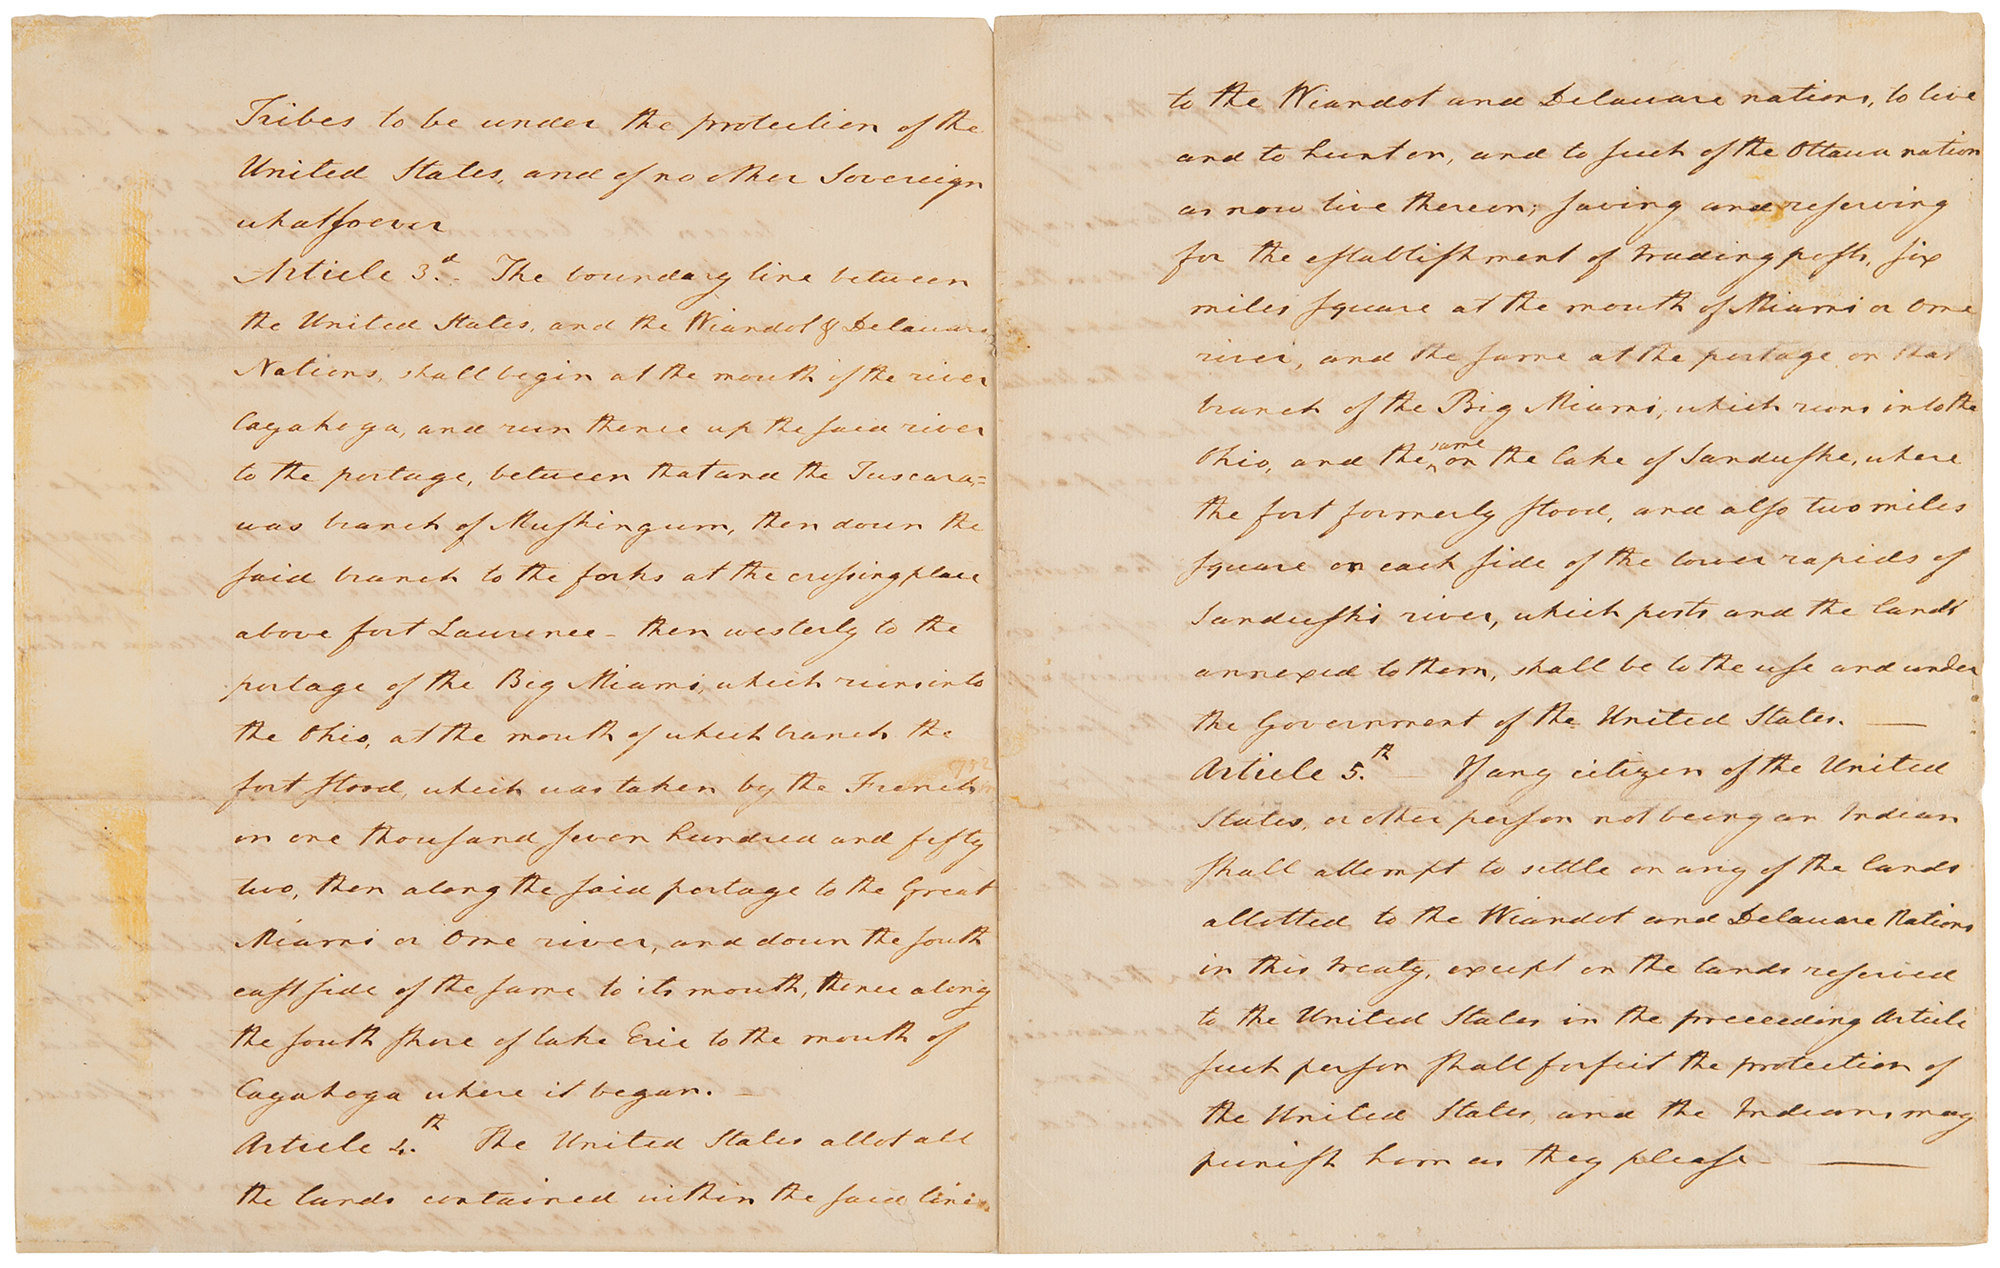 Tribes to be under the protection of the
United States, and of no other Sovereign
whatsoever
Article 3.d The boundary line between
the United States, and the Wiandot & Delaware
Nations, shall begin at the mouth of the river
Cayahoga, and run thence up the said river
to the portage, between that and the Tuscara=
was branch of Muskingum, then down the
said branch to the forks at the crossing place
above fort Laurence - then westerly to the
portage of the Big Miami, which runs into
the Ohio, at the mouth of which branch the
fort stood, which was taken by the French
in one thousand seven hundred and fifty
two, then along the said portage to the Great
Miami or Ome river, and down the south
east side of the same to its mouth, thence along
the south shore of lake Erie to the mouth of
Cayahoga where it began. —
Article 4.th The United States allot all
the lands contained within the said line
to the Wiandot and Delaware nations, to live
and to hunt on, and to such of the Ottawa nation
as now live thereon; saving and reserving
for the establishment of trading posts, six
miles square at the mouth of Miami or Ome
river, and the same at the portage on that
branch of the Big Miami, which runs into the
Ohio, and the same on the lake of Sanduske, where
the fort formerly stood, and also two miles
square on each side of the lower rapids of
Sanduski river, which posts and the lands
annexed to them, shall be to the use and under
the Government of the United States. —
Article 5.th — If any citizen of the United
States, or other person not being an Indian
shall attempt to settle on any of the lands
allotted to the Wiandot and Delaware Nations
in this treaty, except on the lands reserved
to the United States in the preceeding Article
such person shall forfeit the protection of
the United States, and the Indians may
punish him as they please - —